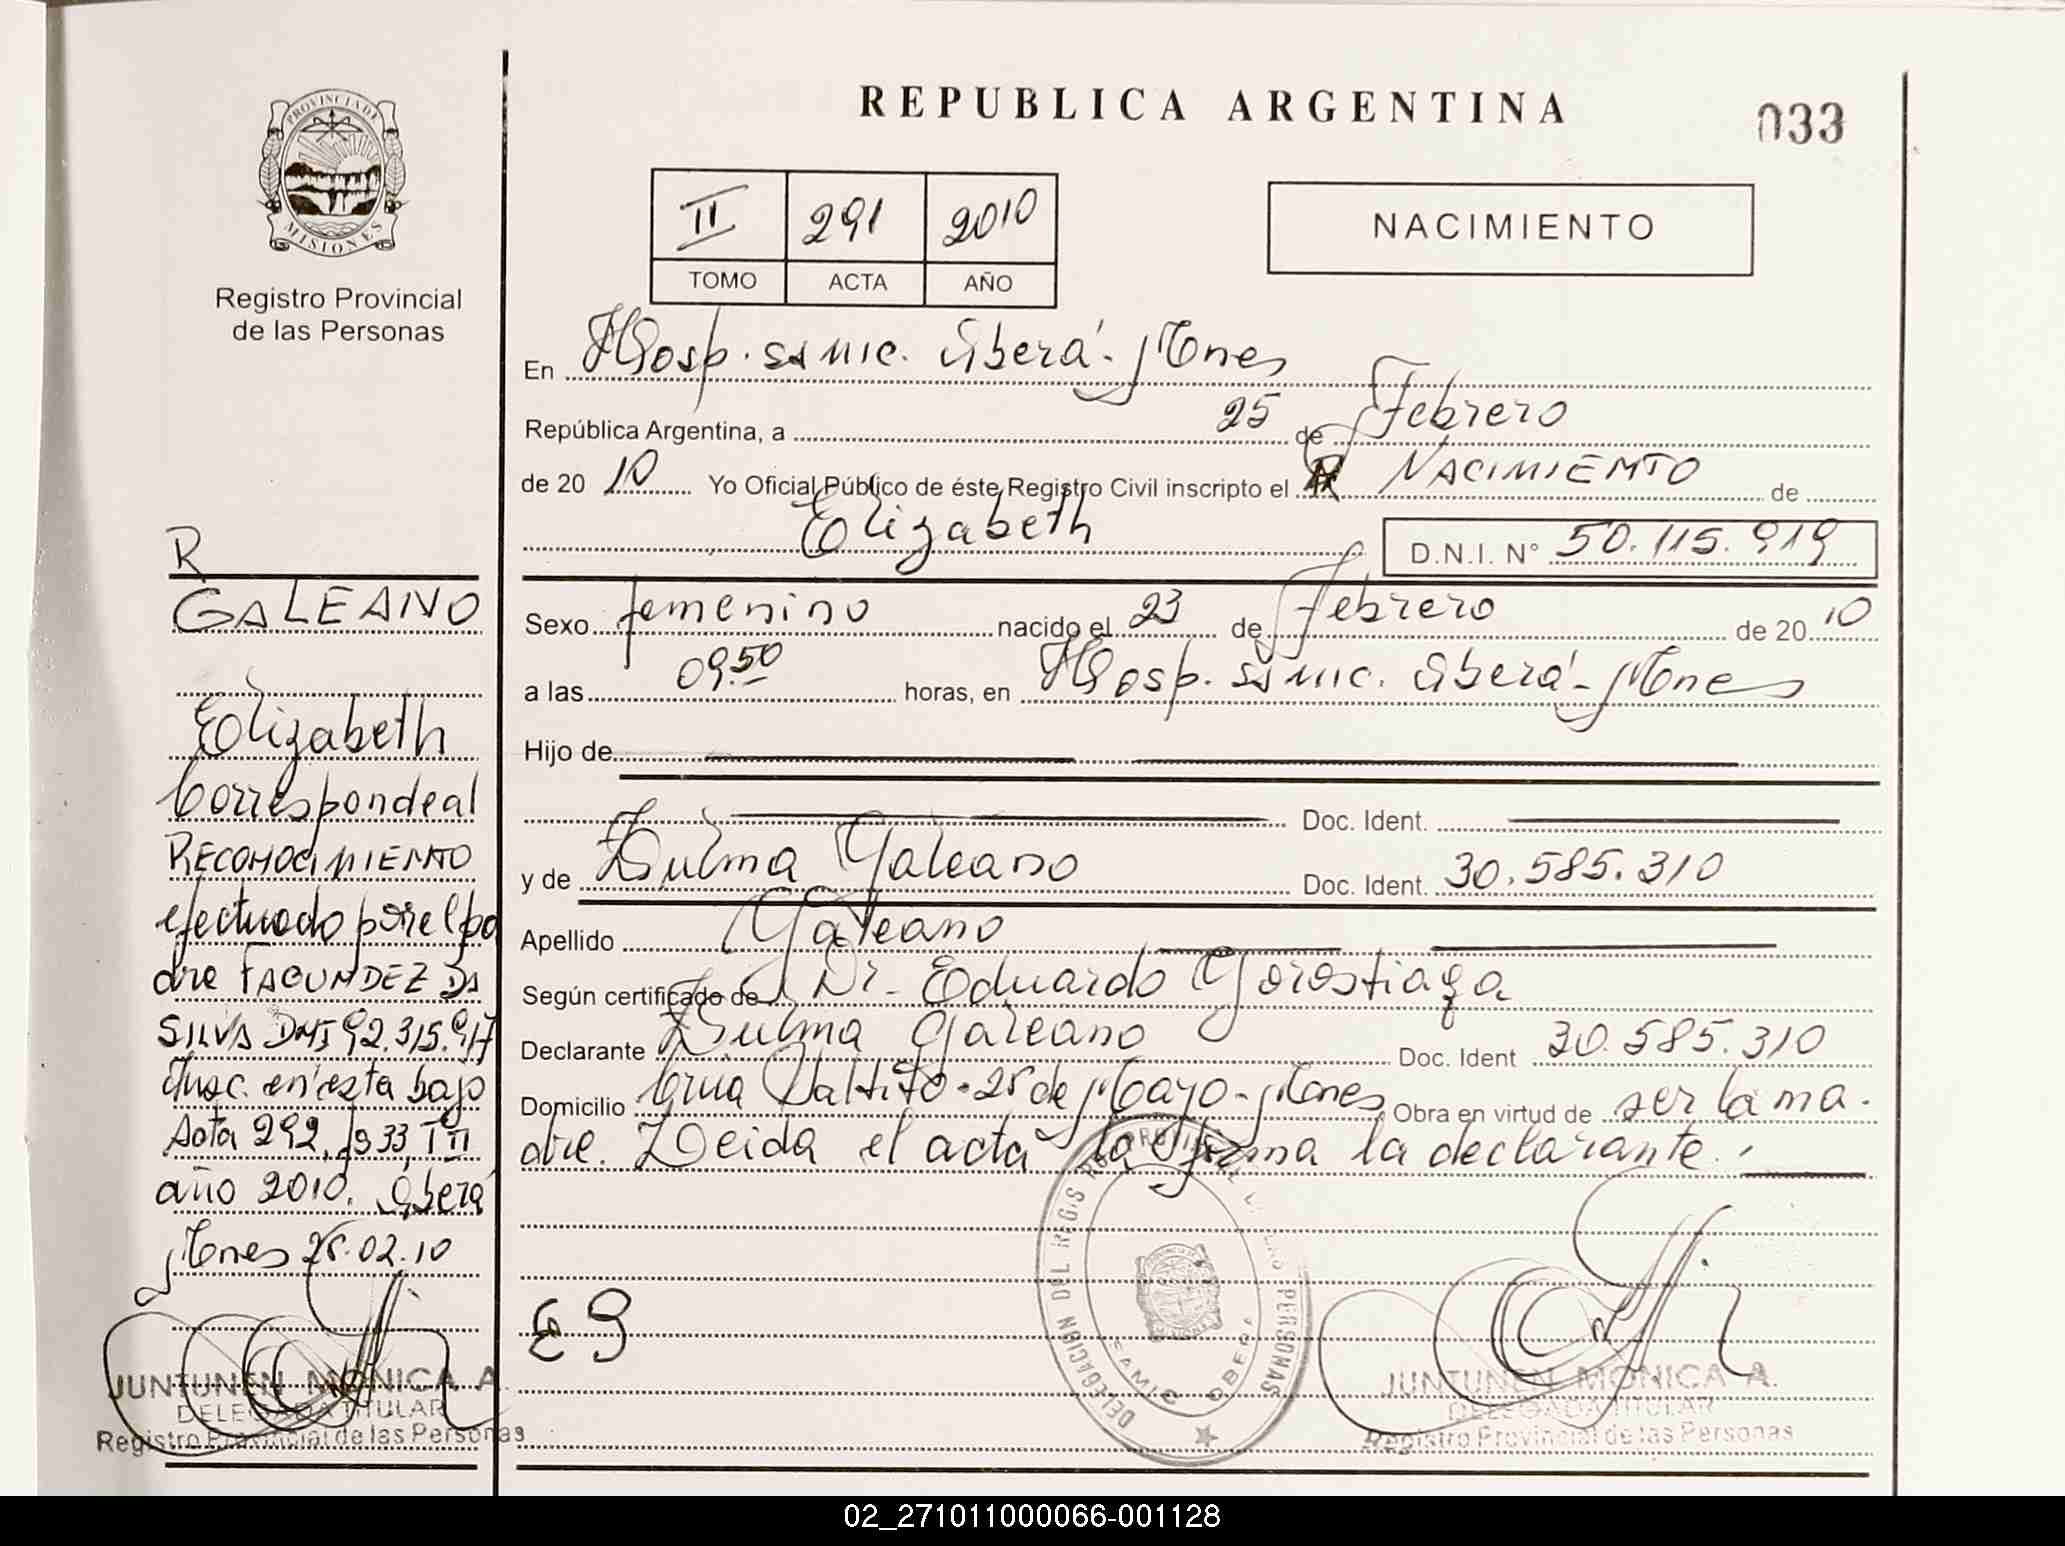 PROVINCIA DE
MISIONES
Registro Provincial
de las Personas
R
GALEANO
Elizabeth
Corresponde al
RECONOCIMIENTO
efectuado por el pa
dre FAGUNDEZ DA
SILVA DNI 92.315.917
Insc. en esta bajo
Acta 292, fs 33, T II
año 2010. Oberá
Mnes 25.02.10
JUNTUNEN MONICA A.
DELEGADA TITULAR
Registro Provincial de las Personas
REPUBLICA ARGENTINA
033
II 291 2010
TOMO ACTA AÑO
NACIMIENTO
En Hosp. samic. Oberá - Mnes
República Argentina, a 25 de Febrero
de 20 10 Yo Oficial Público de éste Registro Civil inscripto el NACIMIENTO de
Elizabeth D.N.I. N° 50.115.919
Sexo femenino nacido el 23 de Febrero de 20 10
a las 09.50 horas, en Hosp. samic. Oberá - Mnes
Hijo de
Doc. Ident.
y de Zulma Galeano Doc. Ident. 30.585.310
Apellido Galeano
Según certificado de Dr. Eduardo Gorostiaga
Declarante Zulma Galeano Doc. Ident 30.585.310
Domicilio 25 de Mayo - Mnes Obra en virtud de ser la ma-
dre. Leida el acta la firma la declarante.
EG
DELEGACION DEL REGISTRO PROVINCIAL DE LAS PERSONAS
SAMIC OBERA
JUNTUNEN MONICA A.
DELEGADA TITULAR
Registro Provincial de las Personas
02_271011000066-001128